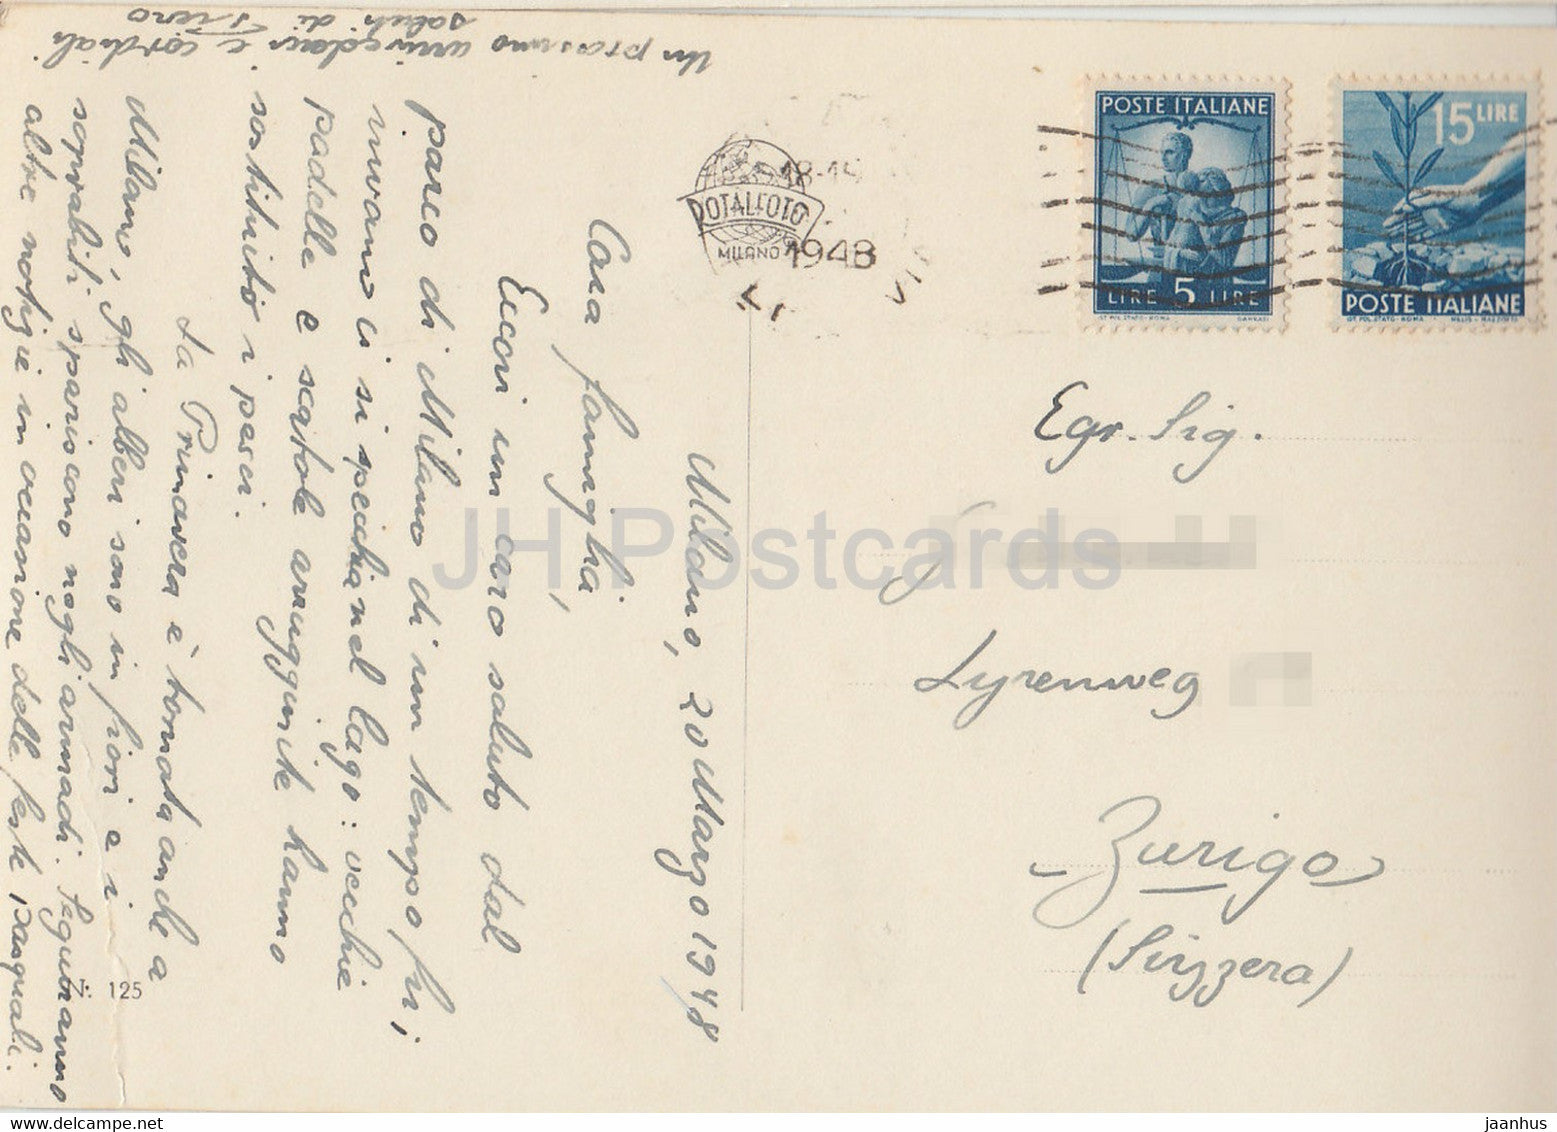 Milano, 20 Marzo 1948
Cara famiglia,
Eccoti un caro saluto dal
parco di Milano di un tempo fu;
nuvano ci si specchia nel lago: vecchie
padelle e scatole arrugginite hanno
sostituito i pesci.
La Primavera è tornata anche a
Milano, gli alberi sono in fiori e i
soprabiti spariscono negli armadi. Seguiranno
altre notizie in occasione delle feste Pasquali.
Un prossimo arrivederci e cordiali
saluti di Piero
N: 125
18-19
1948
DOTALFOTO
MILANO
POSTE ITALIANE
LIRE 5 LIRE
15 LIRE
POSTE ITALIANE
Egr. Sig.
Lyrenweg
Zurigo
(Svizzera)
JH Postcards
jaanhus